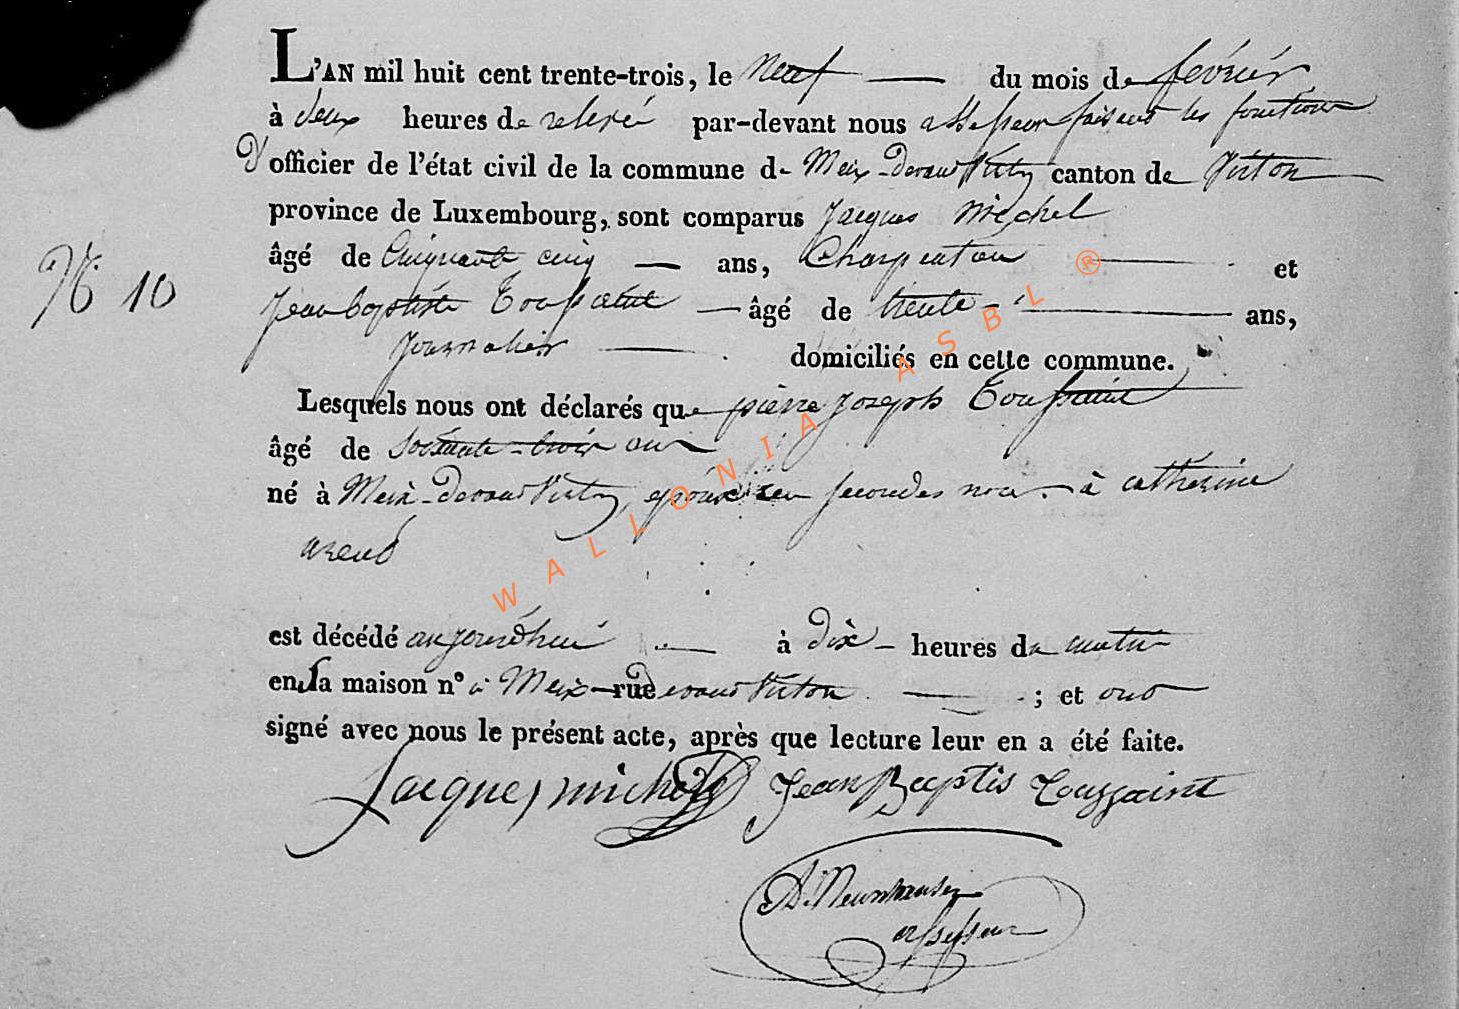 L'AN mil huit cent trente-trois, le neuf du mois de février
à deux heures de relevé par-devant nous assesseur faisant les fonctions
d'officier de l'état civil de la commune de Meix-devant Virton canton de Virton
province de Luxembourg, sont comparus Jacques Michel
âgé de Cinquante cinq ans, Charpentier et
N° 10
Jean baptiste Toussaint âgé de trente ans,
journalier domiciliés en cette commune.
Lesquels nous ont déclarés que pierre joseph Toussaint
âgé de soixante-trois ans
né à Meix-devant Virton, époux en secondes noces à catherine
arend
est décédé aujourd'hui à dix heures du matin
en la maison n° à Meix rue devant Virton ; et ont
signé avec nous le présent acte, après que lecture leur en a été faite.
Jacques michel Jean Baptis Toussaint
assesseur
WALLONIA ASBL ®